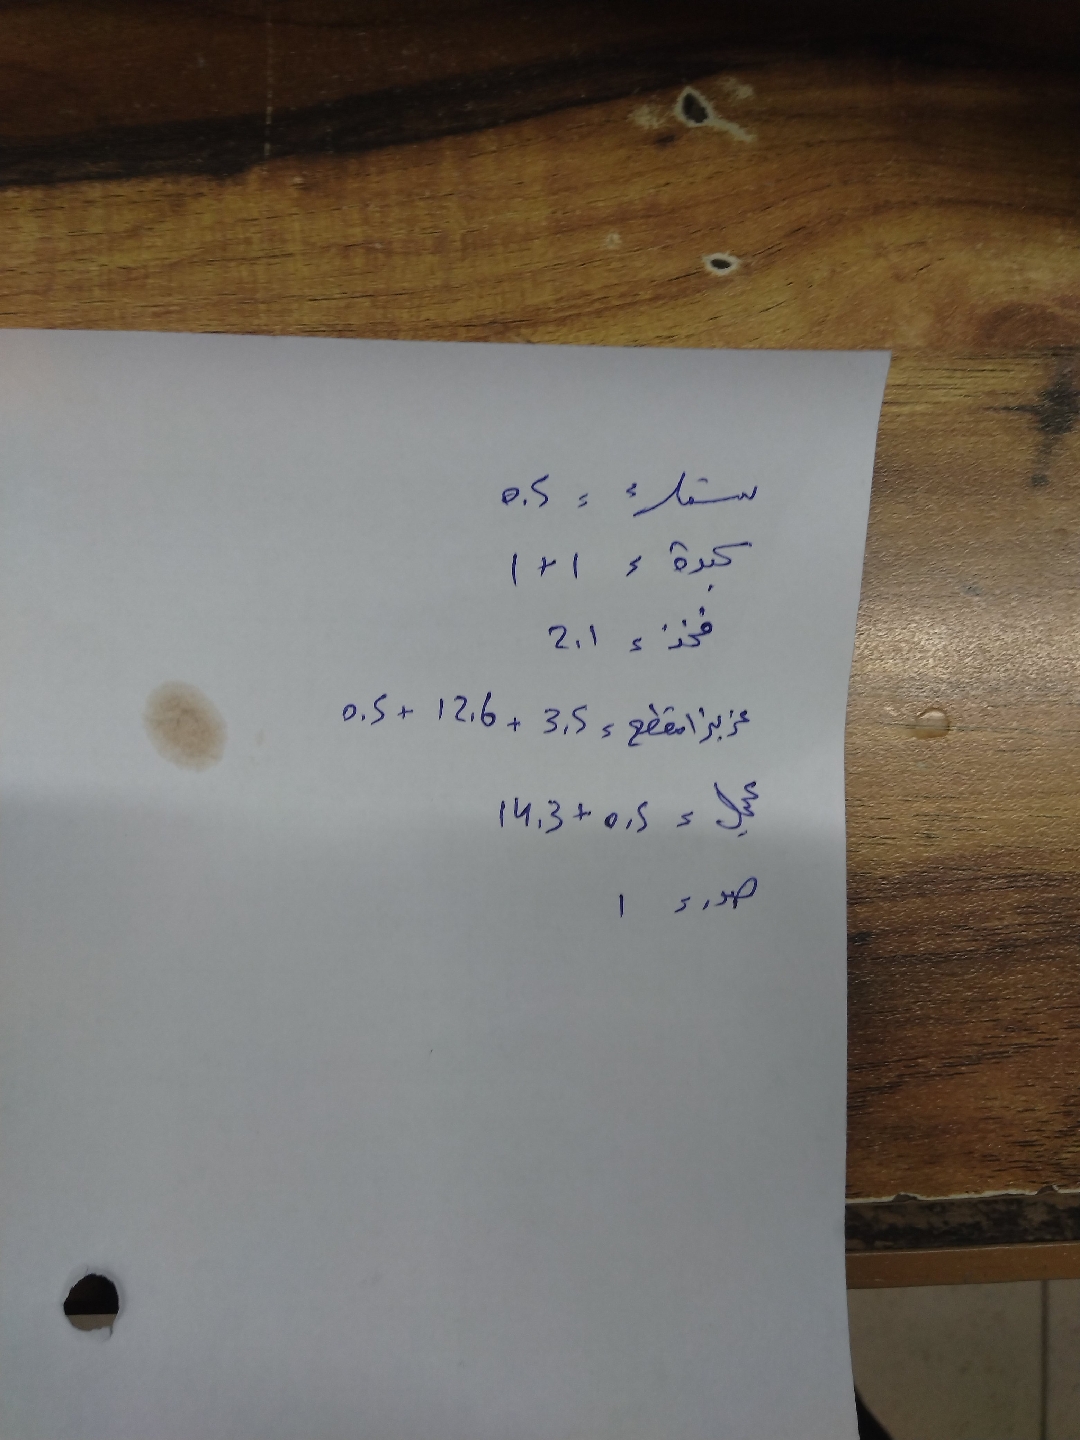 ستيك = 0.5
كبدة = 1+1
فخذ = 2.1
عزيزا مقطع = 3.5 + 12.6 + 0.5
عجل = 0.5 + 14.3
صدر = 1